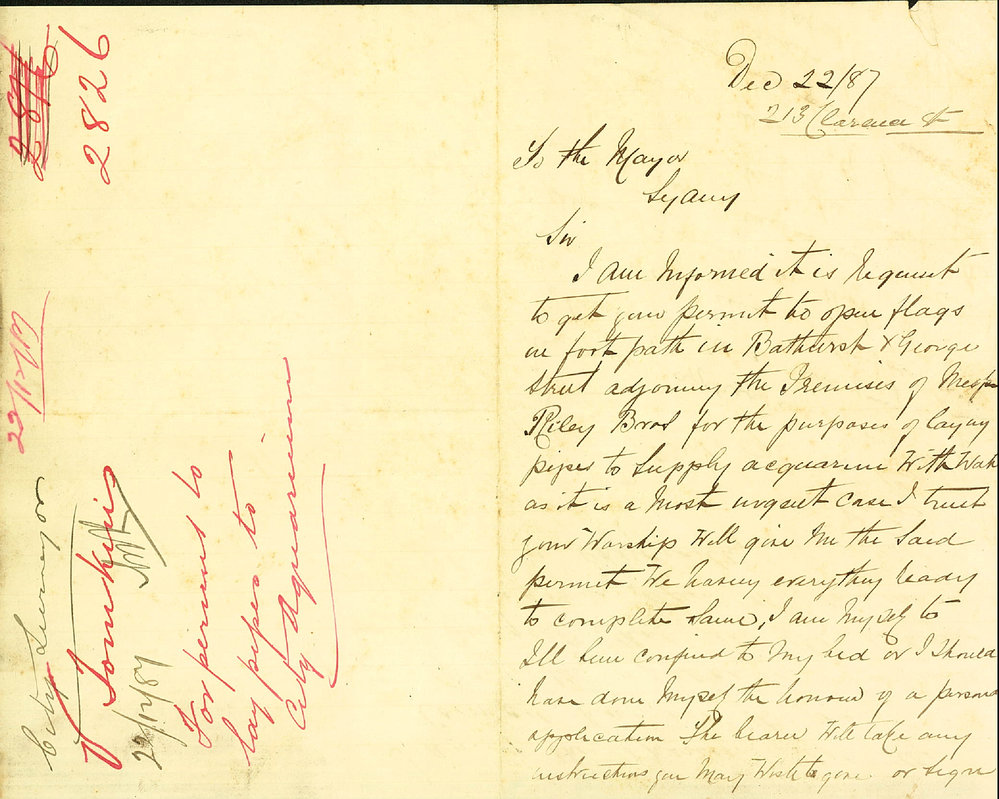 2826
22/12/87
City Surveyor
J Tomkins
22/12/87
For permit to
lay pipes to
City Aquarium
Dec 22/87
213 Clarence St
To the Mayor
Sydny
Sir
I am Informed it is requisit
to get your permit to open flags
in foot path in Bathurst & George
Street adjoining the Premises of Messrs
Riley Bros for the purposes of laying
pipes to Supply acquarium With Wate
as it is a Most urgent case I trust
your Warship Will give Me the Said
permit We having everything ready
to complete Same, I am Myself to
Ill been confined to My bed or I Should
have done Myself the honour of a persona
application The bearer Will take any
instructions you May Wish to give or Sign